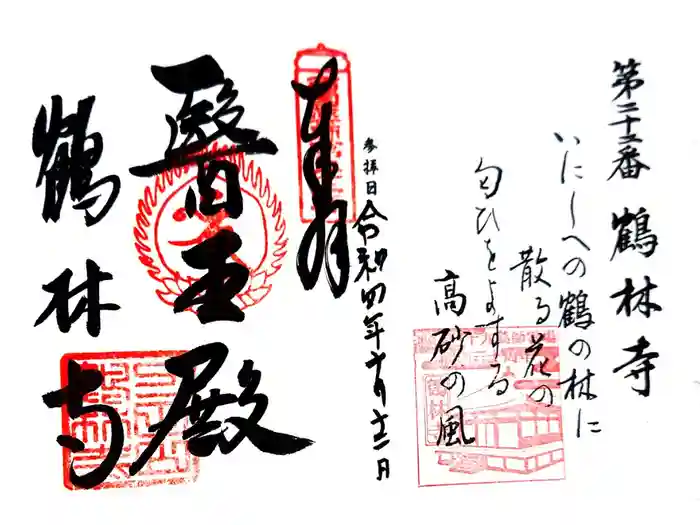 第二十二番 鶴林寺
いにしへの鶴の林に
散る花の
匂ひをよする
高砂の風
参拝日 令和四年十月十三日
奉拝
醫王殿
鶴林寺